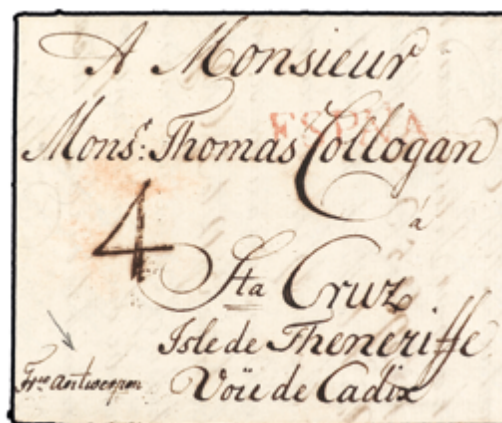 A Monsieur
ESPÑA
Mons.r Thomas Collogan
à
4
Sta Cruz
Isle de Theneriffe
Voïe de Cadix
Fr.co antwerpen